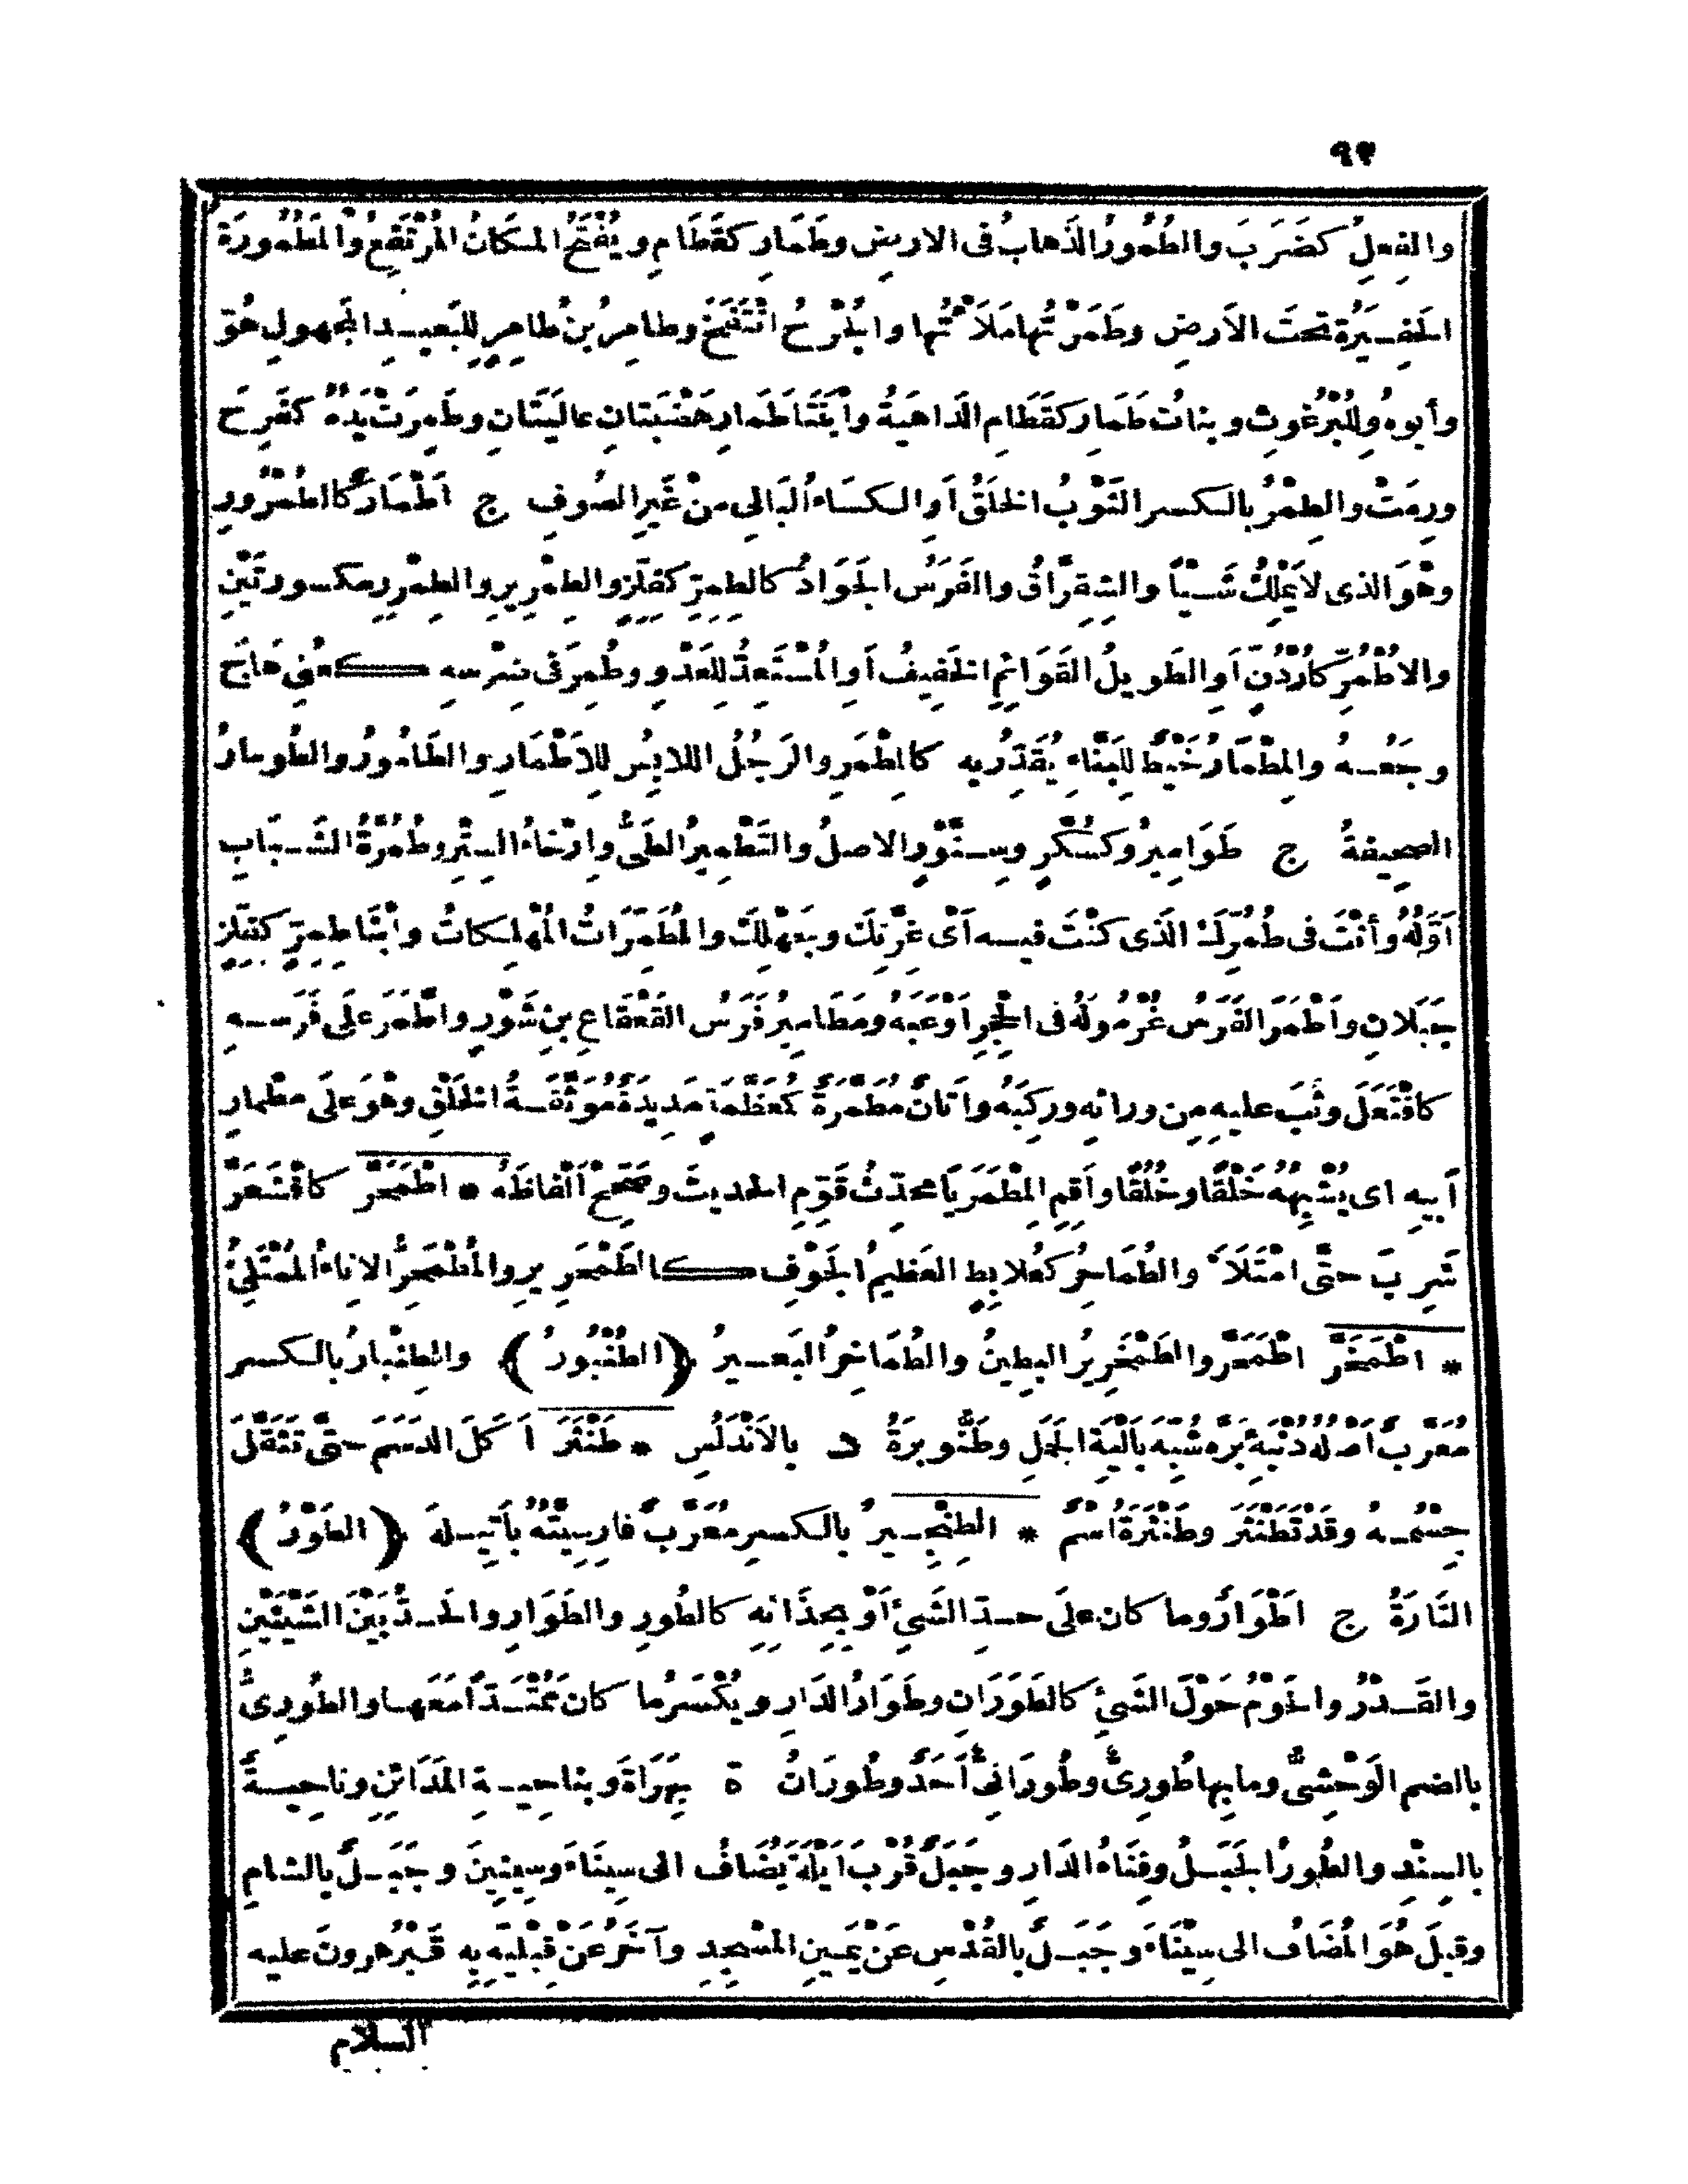 ٩٣
والفِعلُ كضَرَبَ والطُمُورُ الذَهابُ فى الارضِ وطَمَارِ كقَطَامِ ويُفْتَحُ المكانُ المُرْتَفِعُ والمَطْمُورَةُ
الحَفِيرَةُ تحتَ الاَرضِ وطَمَرْتُها مَلَاْتُها والجُرْحُ انْتَفَخَ وطامِرُ بنُ طامِرٍ للبَعيدِ المجهولِ هُوَ
وأبوهُ وللبُرْغوثِ وبناتُ طَمَارِ كقَطَامِ الدَاهيَةُ وابْنَتَا طَمَارِ هَضْبَتانِ عاليَتَانِ وطَمِرَتْ يَدُهُ كفَرِحَ
ورِمَتْ والطِمْرُ بالكسر الثَوْبُ الخَلَقُ اَوِ الكسَاءُ البَالِى منْ غَيرِ الصُوفِ ج اَطْمَارٌ كالطُمْرُورِ
وهْوَ الذى لاَ يَمْلِكُ شَيْأً والشِقِرَّاقُ والفَرَسُ الجَوَادُ كالطِمِرِّ كفِلِزٍّ والطِمْرِيرِ والطِمْرِرِ مكسورتَيْنِ
والاُطْمُرِّ كاُرْدُنٍّ اَوِ الطَويلُ القَوَائمِ الخَفِيفُ اَوِ المُسْتَعِدُّ للعَدْوِ وطُمِرَ فى ضِرْسهِ كعُنِىَ هَاجَ
وجَعُهُ والمِطْمَارُ خَيْطٌ للبَنَّاءِ يُقَدِّرُ بِه كالمِطْمَرِ والرَجُلُ اللابِسُ للاَطْمَارِ والطَامُورُ والطُومارُ
الصحِيفةُ ج طَوَامِيرُ وكسُكّرٍ وسِنَّوْرٍ الاصلُ والتَطْمِيرُ الطَىُّ وارْخاءُ السِتْرِ وطُمُرَّةُ الشَبَابِ
اَوّلُهُ وأنْتَ فى طُمُرِّكَ الَذى كنْتَ فيه اَىْ غِرَّتِكَ وجَهْلِكَ والمُطَمِّرَاتُ المُهْلِكاتُ وابْنَا طِمِرٍّ كفِلِزٍّ
جَبَلانِ واَطْمَرَ الفَرَسُ غُرْمُولَهُ فى الحِجْرِ اَوْعَبَهُ ومَطَامِيرُ فَرَسُ القَعْقَاعِ بنِ شَوْرٍ واطَّمَرَ علَى فَرَسهِ
كافْتَعَلَ وثَبَ عليهِ مِن ورائهِ ورَكِبَهُ واَتانٌ مُطَمَّرَةٌ كمُعَظَّمَةٍ مَدِيدَةٌ مُوَثَّقَةُ الخَلْقِ وهْوَ علَى مطْمارِ
اَبيهِ اى يُشْبِهُهُ خَلْقًا وخُلُقًا واَقِمِ المِطْمَرَ يَا محدِّثُ قَوِّمِ الحديثَ وصَحِّحْ اَلْفاظَهُ * اطْمَحَرَّ كاقْشَعَرَّ
شَرِبَ حتَّى امْتَلَاَ والطُمَاحِرُ كعُلابِطٍ العَظيمُ الجَوْفِ كالطَمْحَرِيرِ والمُطْمَحِرُّ الاِناءُ المُمْتَلِئُ
* اطْمَخَرَّ اطْمَحَرَّ والطَمْخَرِيرُ البطِينُ والطُمَاخِرُ البَعيرُ ﴿الطُنْبُورُ﴾ والطِنْبارُ بالكسر
مُعَرَّبٌ اَصْلُهُ دُنْبَهِٔ بَرّه شُبِّهَ بَالْيَةِ الحَمَلِ وطَنُّوبَرَةُ د بالاَنْدَلُسِ * طَنْثَرَ اَكَلَ الدَسَمَ حتَّى تَثَقَّلَ
جِسْمُهُ وقَدْ تَطَنْثَرَ وطَنْثَرَةُ اسْمٌ * الطِنْجِيرُ بالكسرِ مُعَرَّبٌ فارِسِيَّتُهُ بَاتِيلهَ ﴿الطَوْرُ﴾
التَارَةُ ج اَطْوَارٌ وما كان علَى حدِّ الشَىْءِ اَوْ بِحِذَائِهِ كالطُورِ والطَوَارِ والحَدُّ بَيْنَ الشَيْئَيْنِ
والقَدْرُ والحَوْمُ حَوْلَ الشَىْءِ كالطَوَرَانِ وطَوَارُ الدَارِ ويُكْسَرُ ما كان مُمْتَدًّا مَعَها والطُورِىُّ
بالضم الوَحْشِىُّ وما بِها طُورِىٌّ وطُورَانِىٌّ اَحَدٌ وطُورَانُ ة بِهَرَاةَ وبناحِيةِ المَدَائنِ وناحِيةٌ
بالسِنْدِ والطُورُ الجَبَلُ وفِنَاءُ الدَارِ وجَبَلٌ قُرْبَ اَيْلَةَ يُضَافُ الى سِينَاءَ وسِينِينَ وجَبَلٌ بالشامِ
وقيلَ هُوَ المُضَافُ الى سِيْنَاءَ وجَبَلٌ بالقُدْسِ عَنْ يَمينِ المسْجِدِ وآخَرُ عَنْ قِبْلِيّهِ بِهِ قَبْرُ هرونَ عليه
السلام